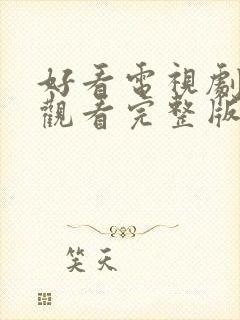 好看電視劇
觀看完整版
笑天